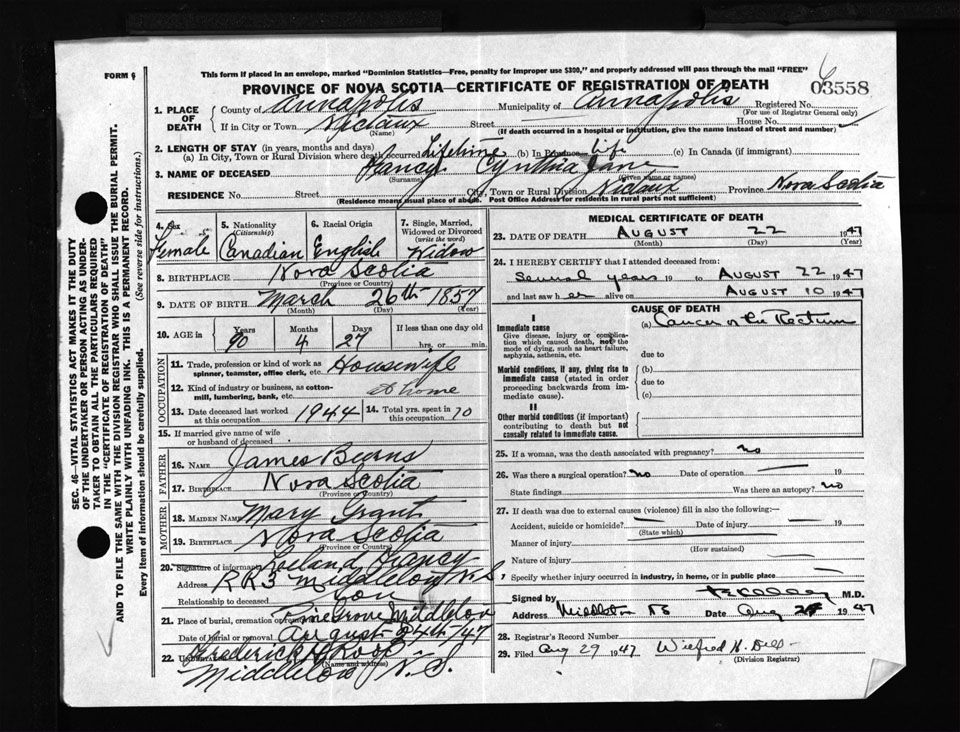 FORM 6
This form if placed in an envelope, marked "Dominion Statistics—Free, penalty for improper use $300," and properly addressed will pass through the mail "FREE"
PROVINCE OF NOVA SCOTIA—CERTIFICATE OF REGISTRATION OF DEATH
6
03558
1. PLACE OF DEATH
County of Annapolis Municipality of Annapolis Registered No.
(For use of Registrar General only)
If in City or Town Nictaux Street House No.
(Name) (If death occurred in a hospital or institution, give the name instead of street and number)
2. LENGTH OF STAY (in years, months and days)
(a) In City, Town or Rural Division where death occurred Lifetime (b) In Province Life (c) In Canada (if immigrant)
3. NAME OF DECEASED Cynthia Jane
(Surname) (Given name or names)
RESIDENCE No. Street City, Town or Rural Division Nictaux Province Nova Scotia
(Residence means usual place of abode. Post Office Address for residents in rural parts not sufficient)
4. Sex Female
5. Nationality (Citizenship) Canadian
6. Racial Origin English
7. Single, Married, Widowed or Divorced (write the word) Widow
8. BIRTHPLACE Nova Scotia
(Province or Country)
9. DATE OF BIRTH March 26th 1857
(Month) (Day) (Year)
10. AGE in Years 90 Months 4 Days 27 If less than one day old hrs. or min.
OCCUPATION
11. Trade, profession or kind of work as spinner, teamster, office clerk, etc. Housewife
12. Kind of industry or business, as cotton-mill, lumbering, bank, etc. At home
13. Date deceased last worked at this occupation 1944
14. Total yrs. spent in this occupation 70
15. If married give name of wife or husband of deceased
FATHER
16. NAME James Burns
17. Birthplace Nova Scotia
(Province or Country)
MOTHER
18. MAIDEN NAME Mary Grant
19. BIRTHPLACE Nova Scotia
(Province or Country)
20. Signature of informant Leeland
Address RR3 Middleton N.S
Relationship to deceased Son
21. Place of burial, cremation or removal Pine Grove Middleton
Date of burial or removal August 24th /47
22. Undertaker Frederick A Roop
(Name and address)
Middleton N.S.
MEDICAL CERTIFICATE OF DEATH
23. DATE OF DEATH AUGUST 22 1947
(Month) (Day) (Year)
24. I HEREBY CERTIFY that I attended deceased from:
Several years 19 to AUGUST 22 1947
and last saw h er alive on AUGUST 10 1947
CAUSE OF DEATH
I
Immediate cause
Give disease, injury or complication which caused death, not the mode of dying, such as heart failure, asphyxia, asthenia, etc.
(a) Cancer of the Rectum
due to
Morbid conditions, if any, giving rise to immediate cause (stated in order proceeding backwards from immediate cause).
(b)
due to
(c)
II
Other morbid conditions (if important) contributing to death but not causally related to immediate cause.
25. If a woman, was the death associated with pregnancy? no
26. Was there a surgical operation? no Date of operation — 19
State findings Was there an autopsy? no
27. If death was due to external causes (violence) fill in also the following:—
Accident, suicide or homicide? — Date of injury — 19
(State which)
Manner of injury
(How sustained)
Nature of injury
Specify whether injury occurred in industry, in home, or in public place
Signed by M.D.
Address Middleton NS Date Aug 1947
28. Registrar's Record Number
29. Filed Aug 29 1947 Wilfred H.
(Division Registrar)
SEC. 46—VITAL STATISTICS ACT MAKES IT THE DUTY
OF THE UNDERTAKER OR PERSON ACTING AS UNDERTAKER TO OBTAIN ALL THE PARTICULARS REQUIRED
IN THE "CERTIFICATE OF REGISTRATION OF DEATH"
AND TO FILE THE SAME WITH THE DIVISION REGISTRAR WHO SHALL ISSUE THE BURIAL PERMIT.
WRITE PLAINLY WITH UNFADING INK. THIS IS A PERMANENT RECORD.
Every item of information should be carefully supplied. (See reverse side for instructions.)